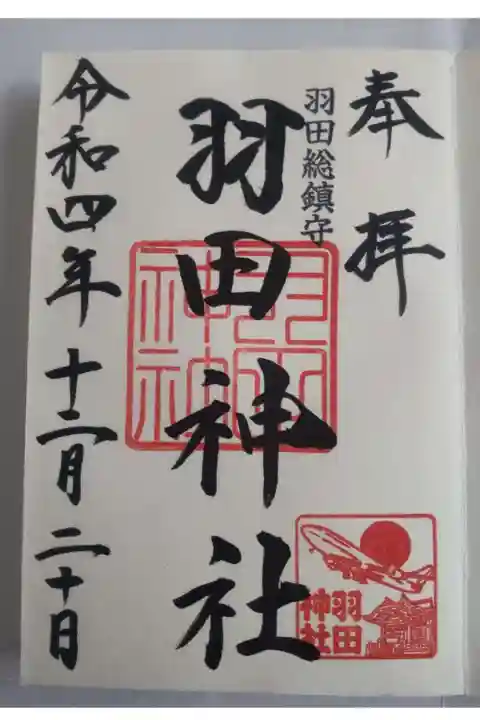 奉拝
羽田総鎮守
羽田神社
羽田神社
令和四年十二月二十日
羽田
神社